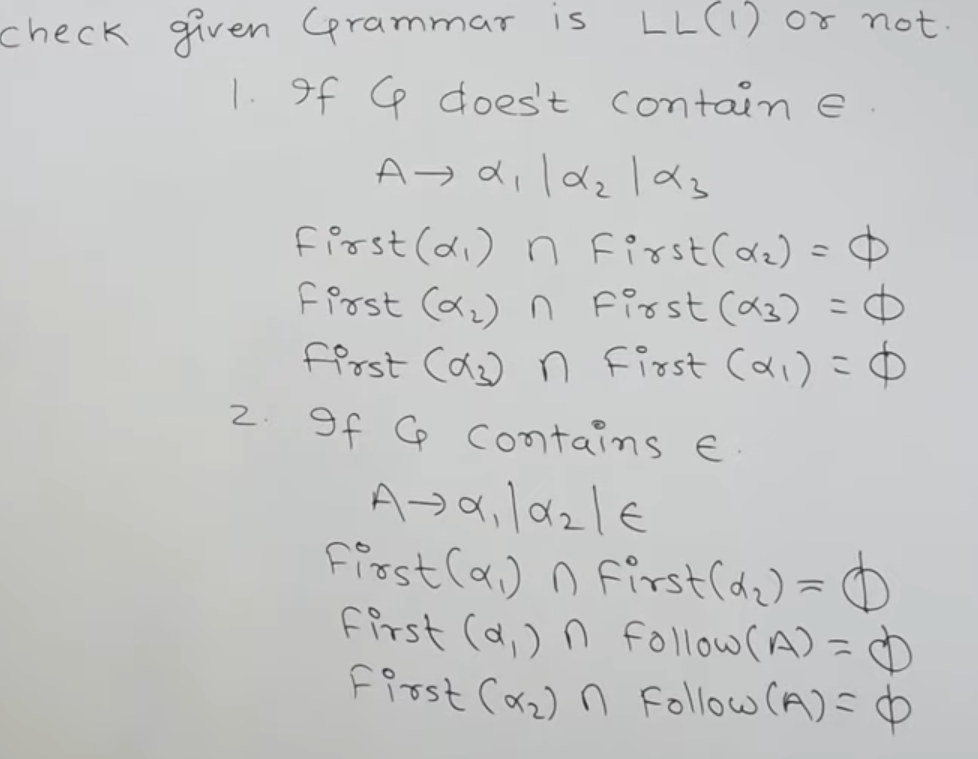 check given Grammar is LL(1) or not.
1. If G does't contain ϵ.
A → α₁ | α₂ | α₃
First(α₁) ∩ First(α₂) = ϕ
First (α₂) ∩ First(α₃) = ϕ
First (α₃) ∩ First (α₁) = ϕ
2. If G contains ϵ.
A → α₁ | α₂ | ϵ
First(α₁) ∩ First(α₂) = ϕ
First (α₁) ∩ Follow(A) = ϕ
First (α₂) ∩ Follow(A) = ϕ